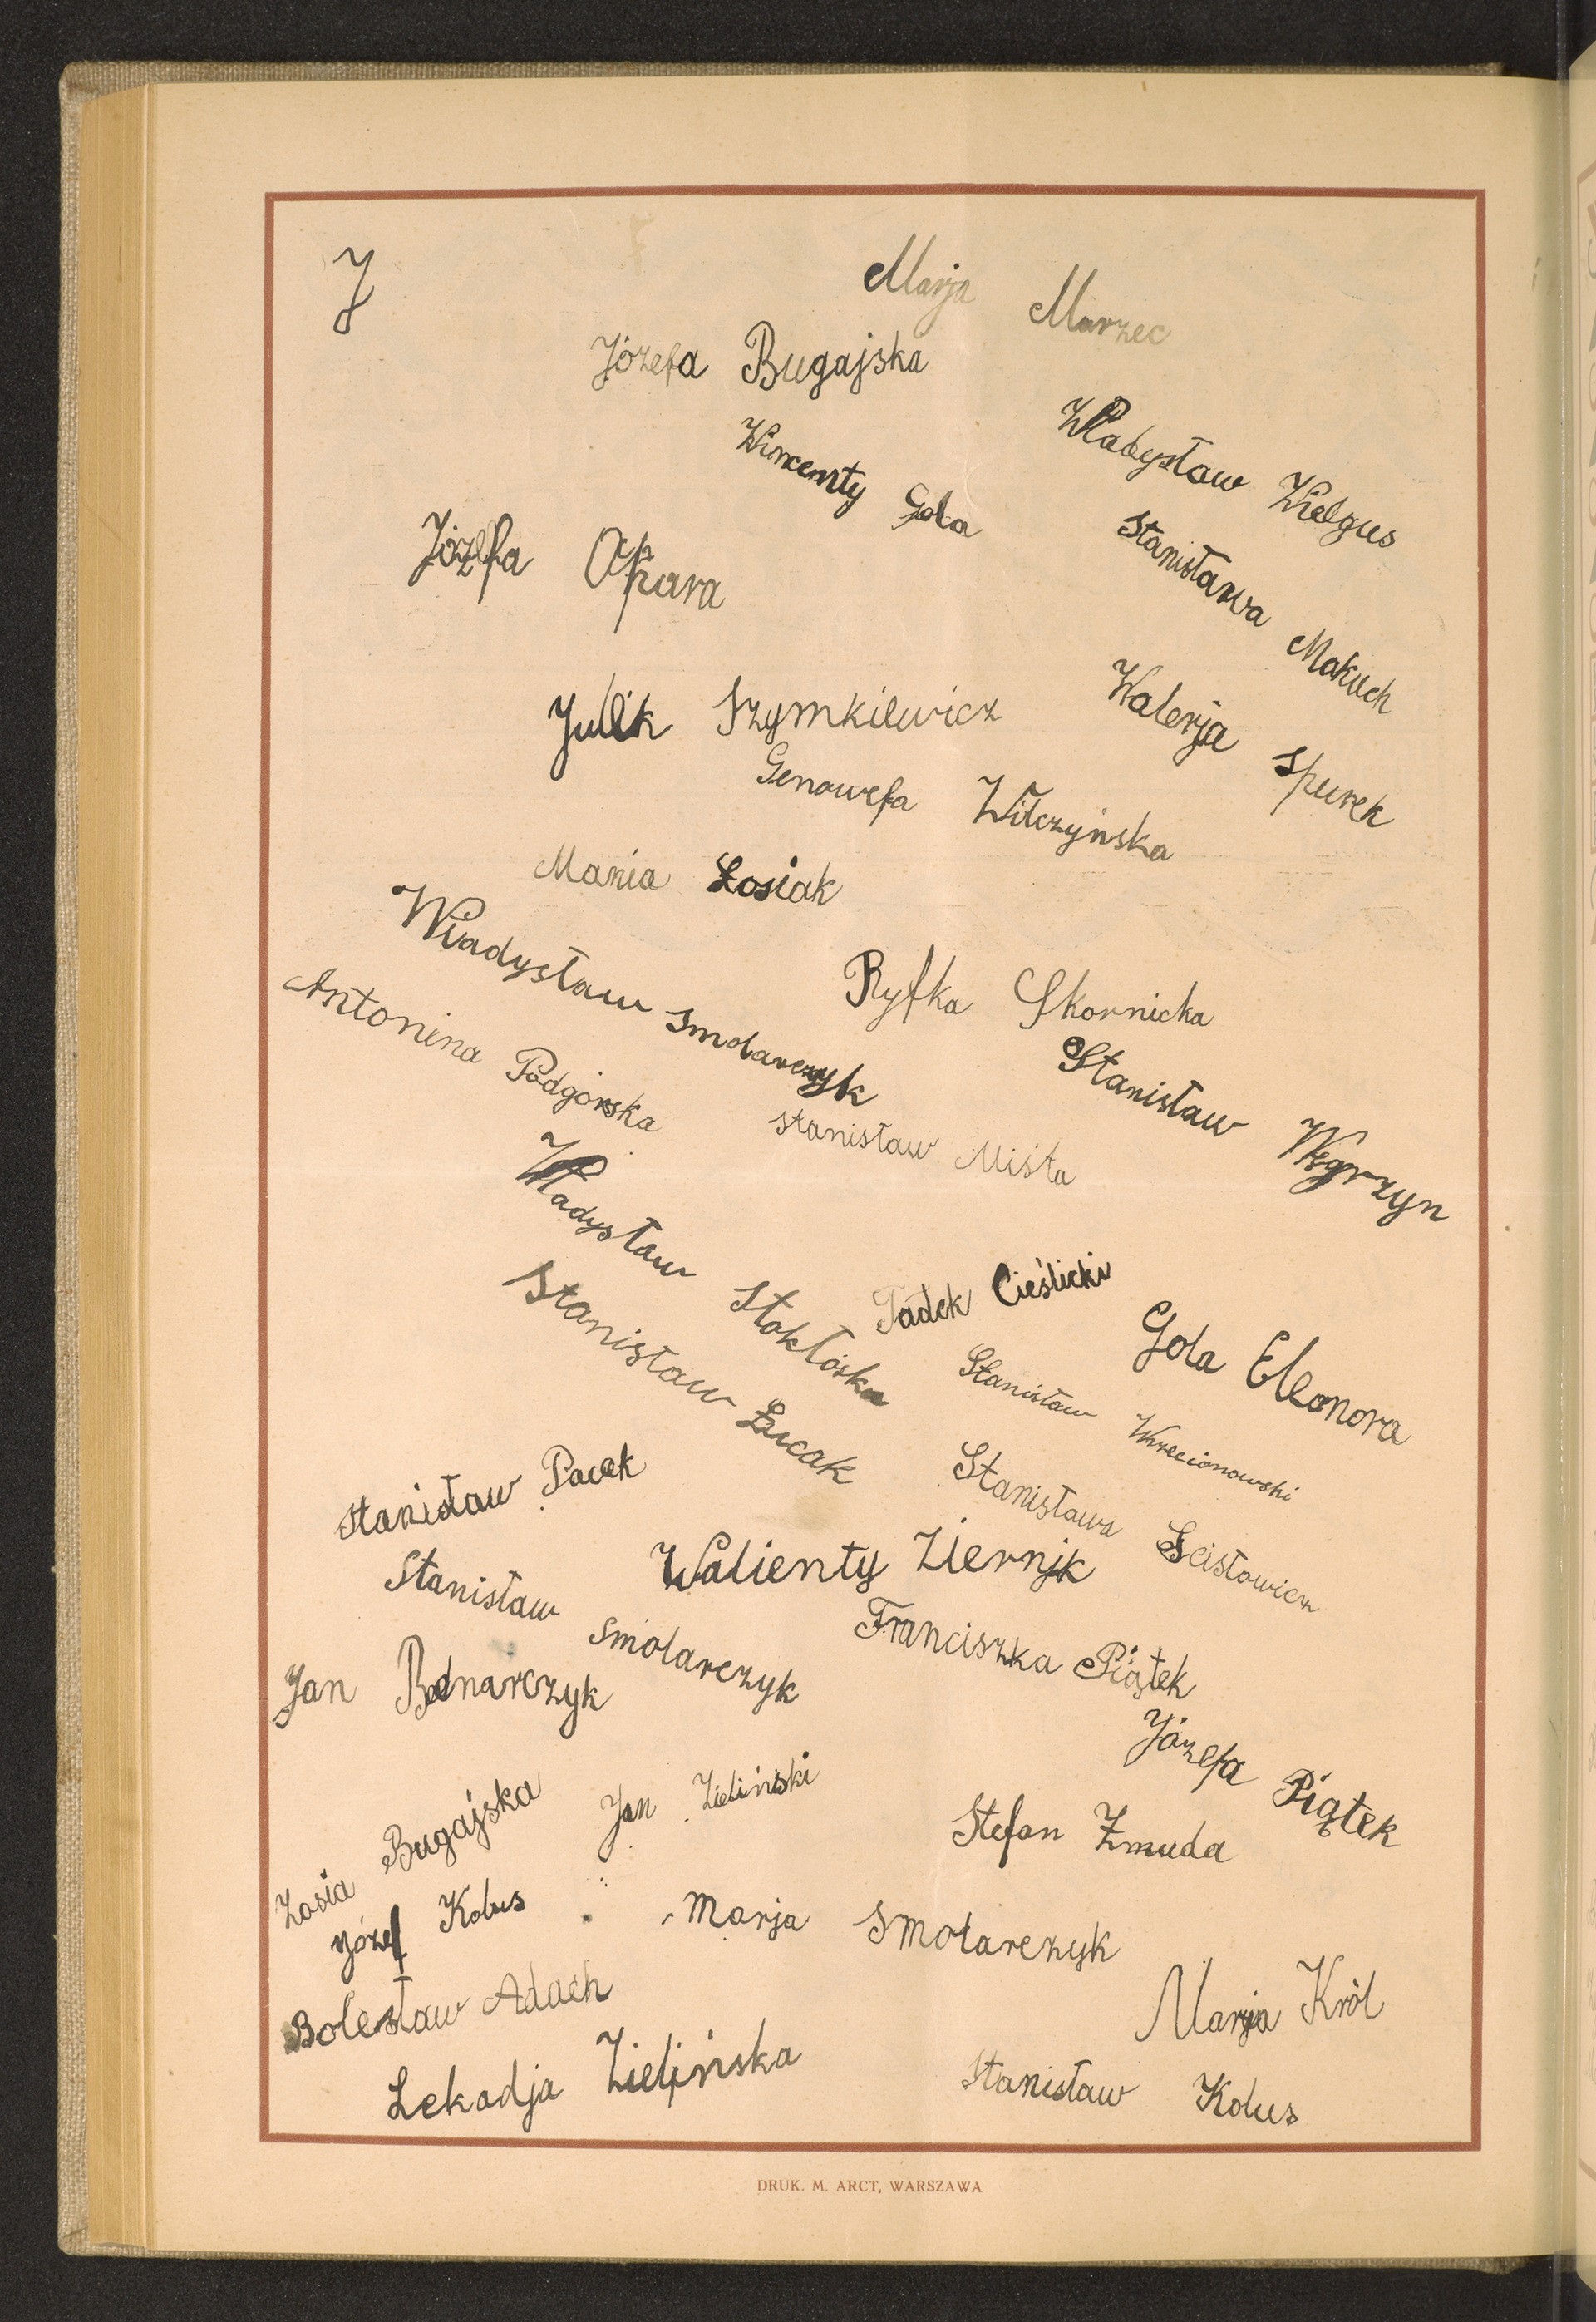 J
Marja Marzec
Józefa Bugajska
Władysław Wielgus
Wincenty Gola
Stanisława Makuch
Józefa Opara
Walerja Spurek
Julik Szymkilewicz
Genowefa Wilczyńska
Mania Łosiak
Władysław Smolarczyk
Ryfka Skornicka
Antonina Podgórska
Stanisław Węgrzyn
Stanisław Miśta
Władysław Stokłoska
Tadek Cieślicki
Gola Eleonora
Stanisław Łucak
Stanisław Wrzecionowski
Stanisław Pacek
Stanisława Ścisłowicz
Walienty Ziernik
Stanisław Smolarczyk
Franciszka Piątek
Jan Bednarczyk
Józefa Piątek
Jan Zieliński
Zosia Bugajska
Stefan Żmuda
Józef Kolus
Marja Smolarczyk
Bolesław Adach
Marja Król
Lekadja Zielińska
Stanisław Kolus
DRUK. M. ARCT, WARSZAWA